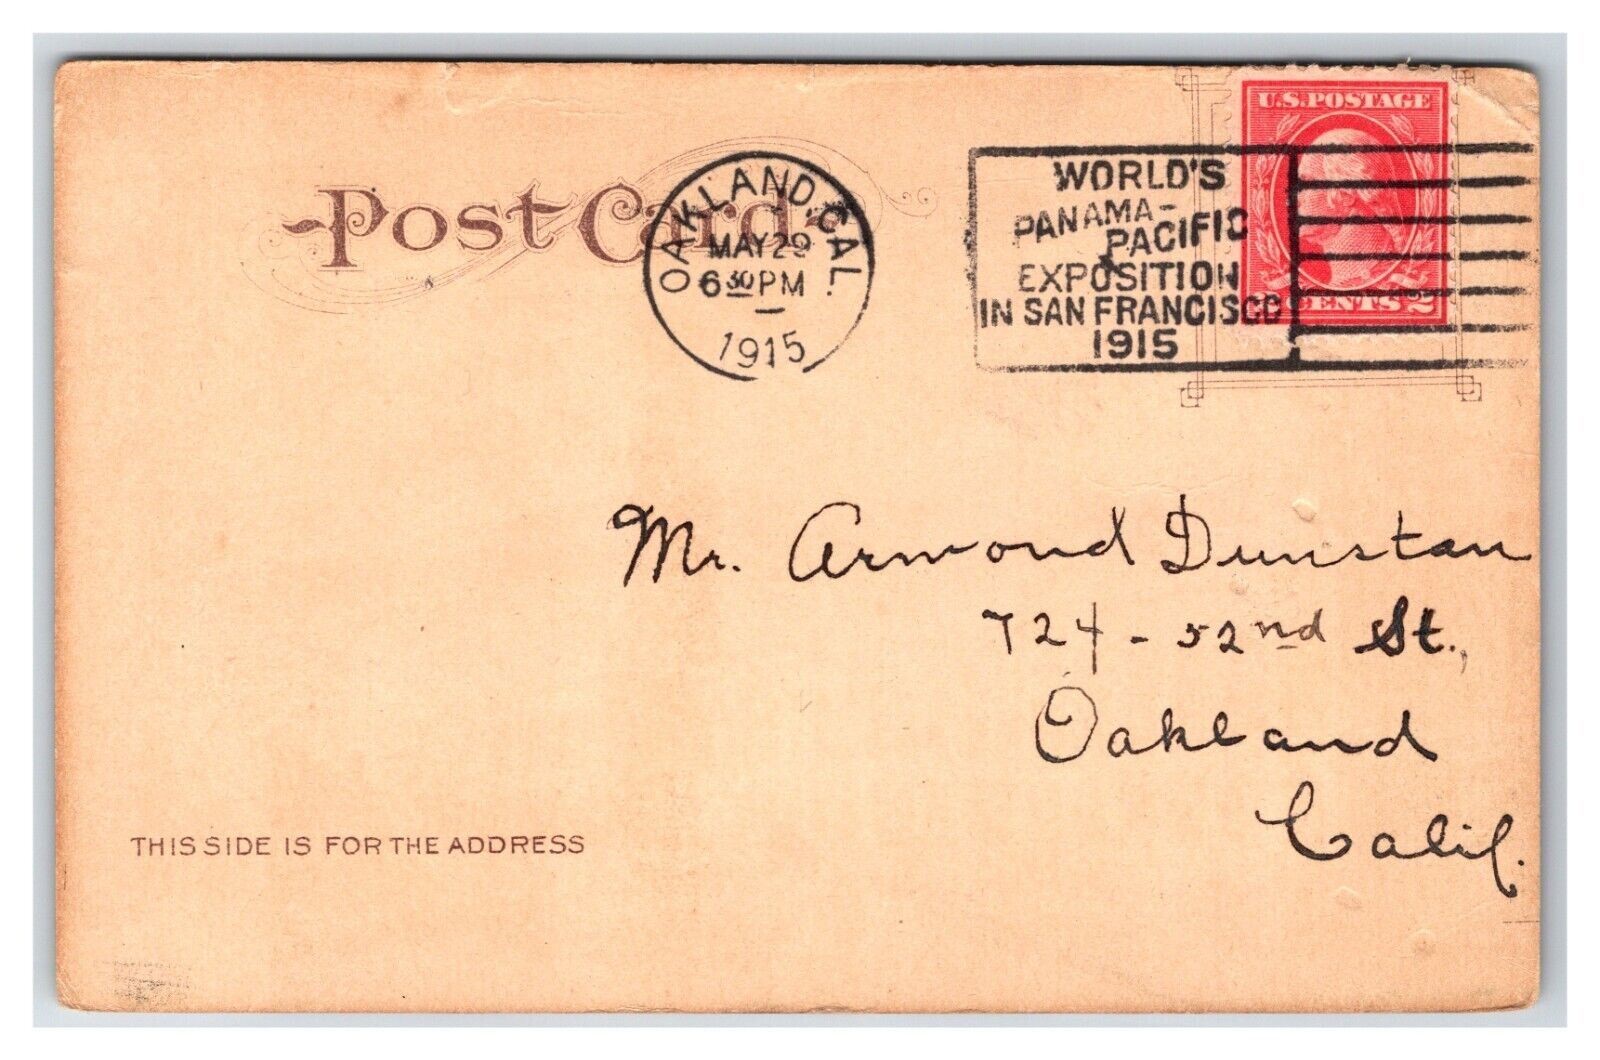 Post Card
OAKLAND, CAL.
MAY 29
6 30 PM
1915
WORLD'S
PANAMA-
PACIFIC
EXPOSITION
IN SAN FRANCISCO
1915
U.S. POSTAGE
2 CENTS 2
Mr. Armond Dunstan
724 - 52nd St.,
Oakland
Calif.
THIS SIDE IS FOR THE ADDRESS